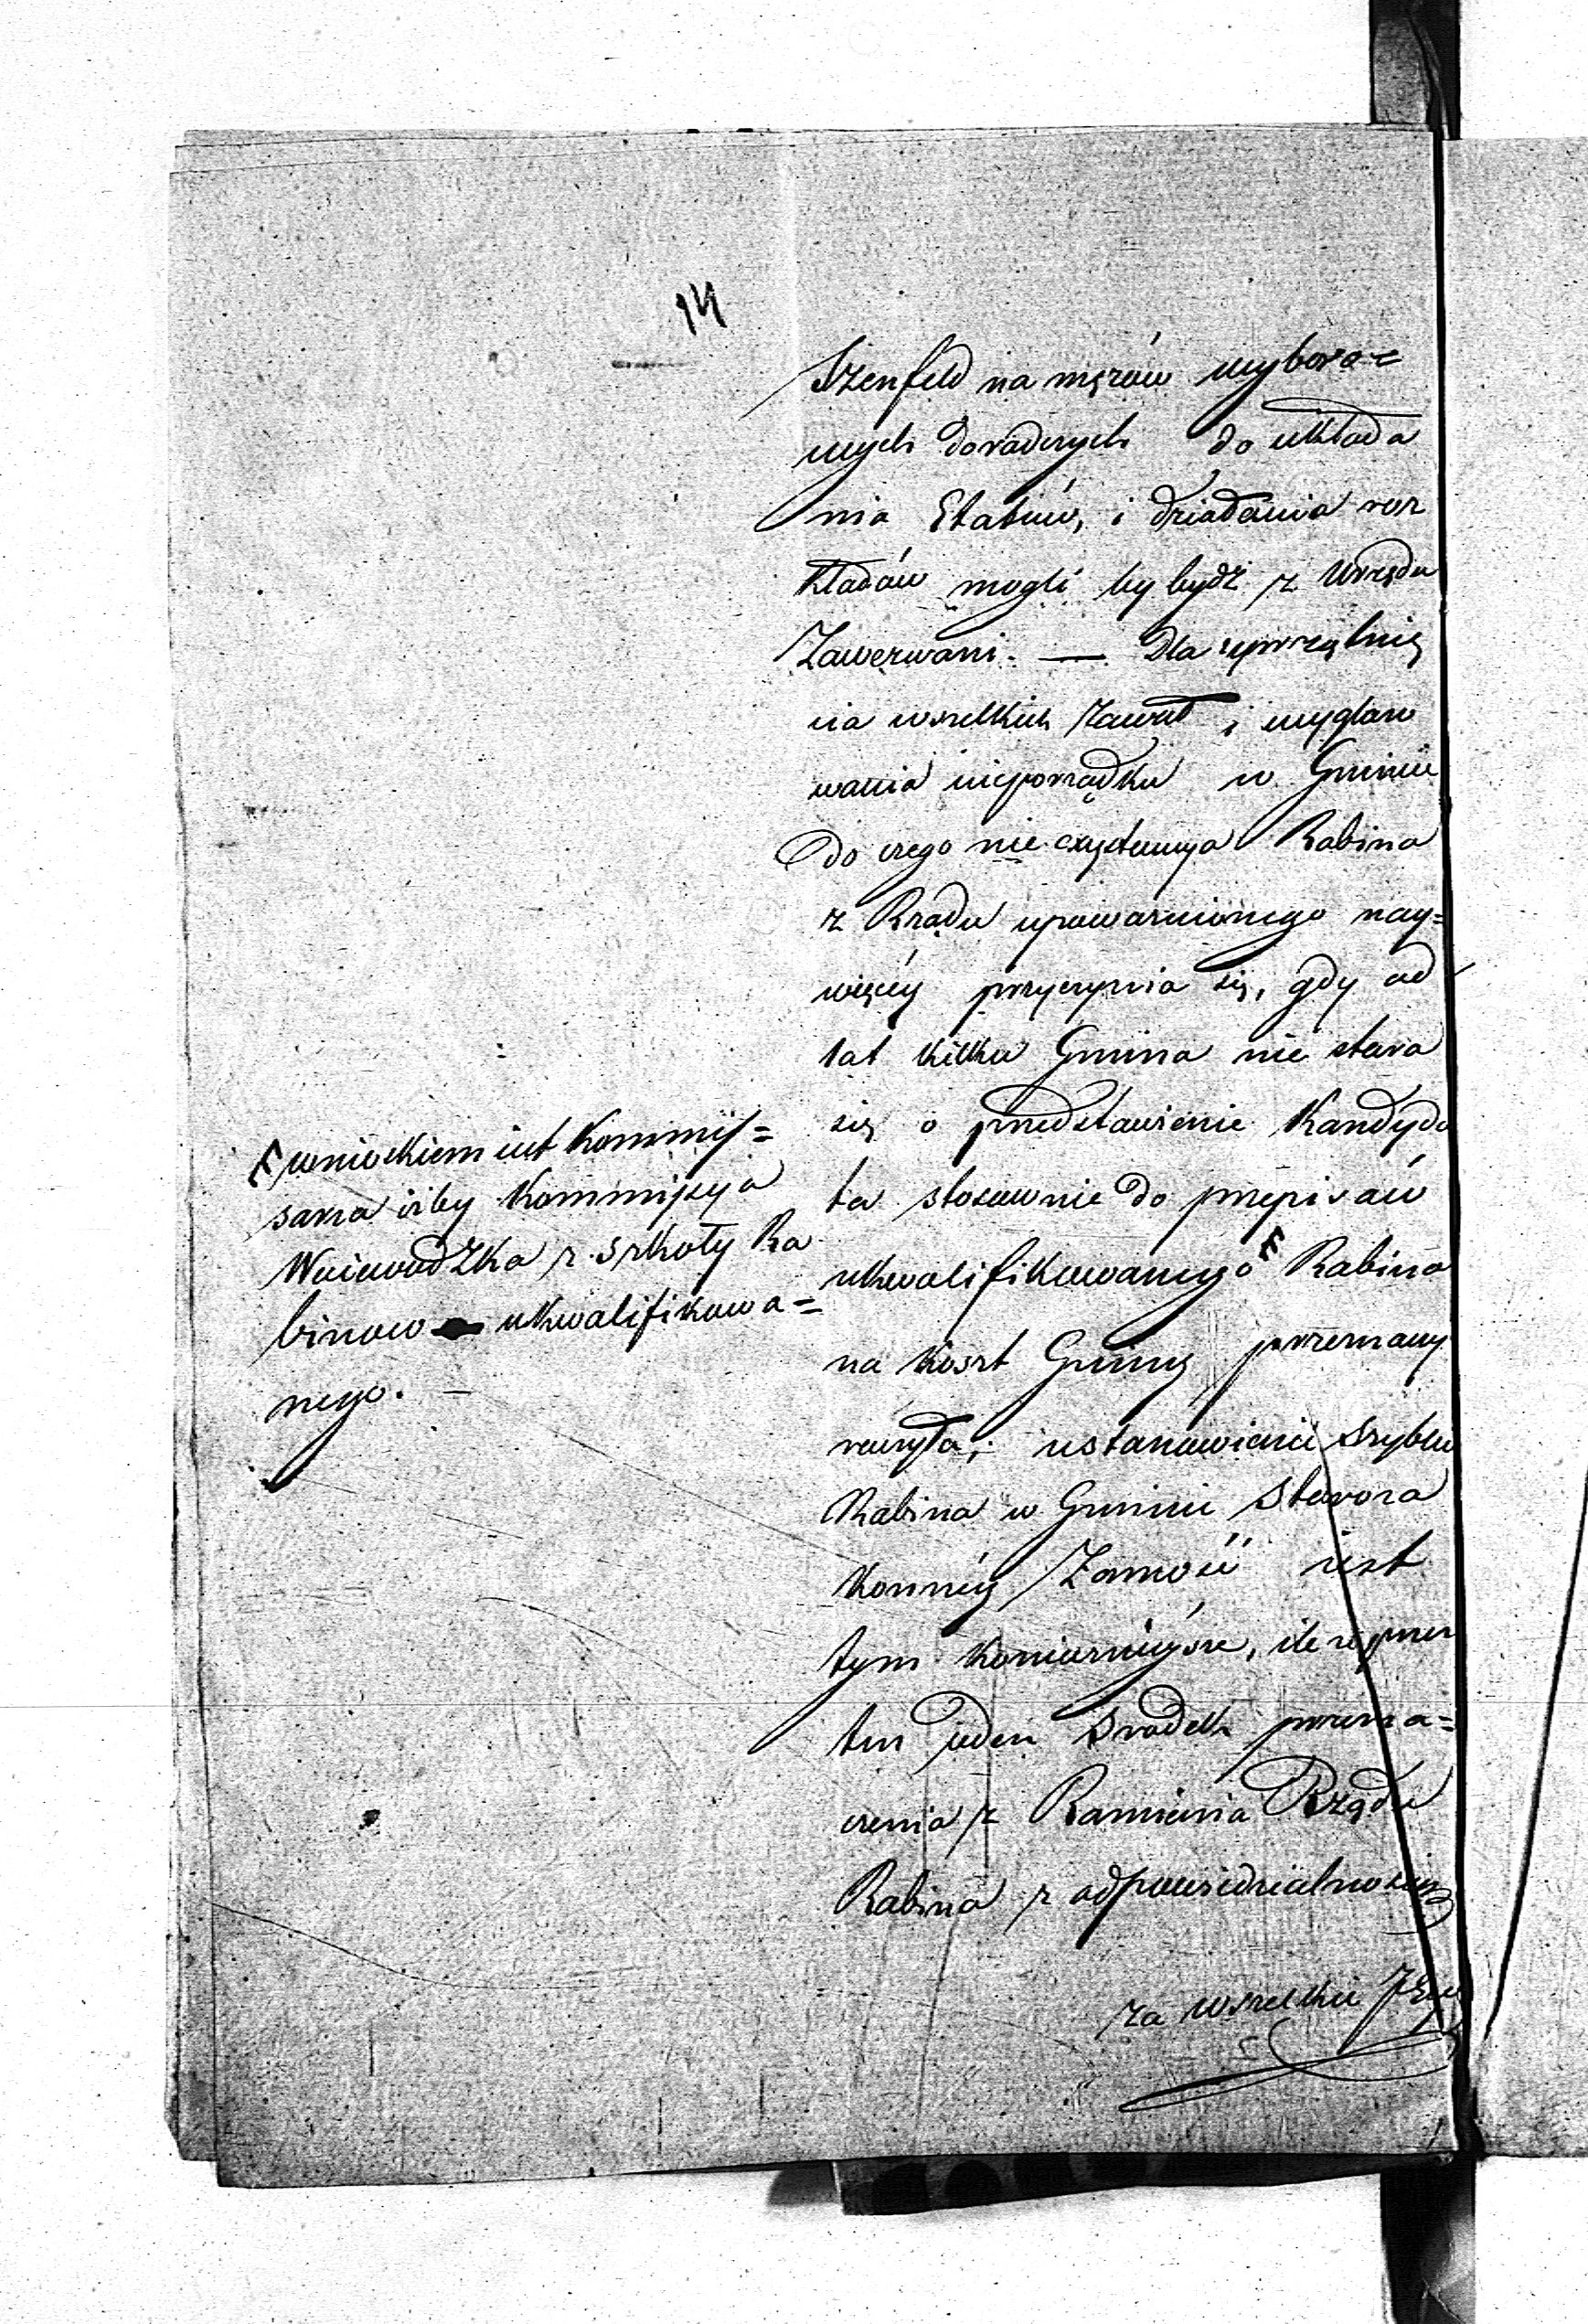 14
Szenfeld na mężów wybora=
nych doradczych do układa
nia Etatów, i działania roz
kładów mogli by bydź z Urzędu
Zawezwani. — Dla uprzątnię
nia wszelkich zawad i
wania nieporządku w Gminie
do czego nie Rabina
z Rządu upoważnionego nay=
więcéy przyczynia się, gdy od
lat kilku Gmina nie stara
się o przedstawienie Kandyda
ta stosownie do przepisów
ukwalifikowanego Rabina
na koszt Gminy przeznaczyć
raczyła; ustanowienie
Rabina w Gminie Staroza
konnéy Zamość iest
tym konieczniéysze, ile że przez
ten ieden środek przezna=
czenia z Ramienia Rządu
Rabina z odpowiedzialnością
za wszelkie
wnioskiem iest Kommis=
sarza iżby Kommissya
Woiewodzka z szkoły Ra
binow ukwalifikowa=
nego. —